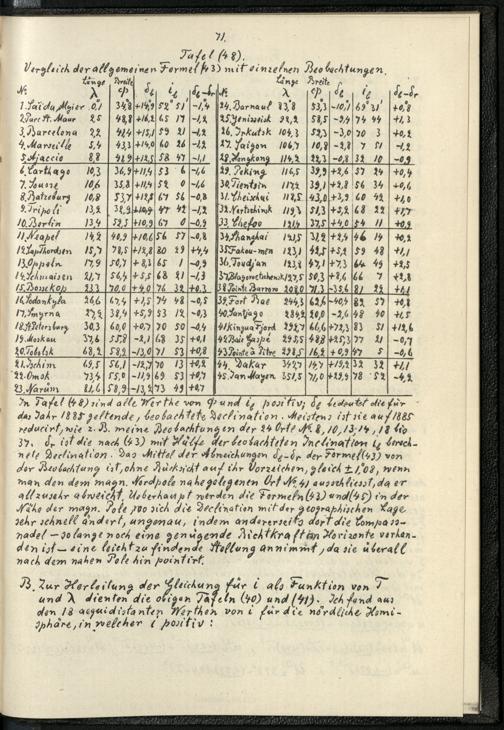 71.
Tafel (48).
Vergleich der allgemeinen Formel (43) mit einzelnen Beobachtungen.
Länge Breite Länge Breite
No. λ φ δb ib δb-δr No. λ φ δb ib δb-δr
1. Saïda Algier 0,1 34,8 +14,9 52° 51' -1,4 24. Barnaul 83,8 53,3 -10,1 69° 31' +0,8
2. Parc St. Maur 2,5 48,8 +16,2 65 17 -1,2 25. Jenisseisk 92,2 58,5 74 44 +1,3
3. Barcelona 2,2 41,4 +15,1 59 21 -1,2 26. Irkutsk 104,3 52,3 -3,0 70 3 +0,2
4. Marseille 5,4 43,3 +14,0 60 26 -1,2 27. Saigon 106,7 10,8 -2,8 7 51 -1,2
5. Ajaccio 8,8 41,9 +12,5 58 47 -1,1 28. Hongkong 114,2 22,3 -0,8 32 10 -0,9
6. Carthago 10,3 36,9 +11,4 53 6 -1,6 29. Peking 116,5 39,9 +2,6 57 24 +0,4
7. Sousse 10,6 35,8 +11,4 52 0 -1,6 30. Tientsin 117,2 39,1 +2,8 56 34 +0,6
8. Ratzeburg 10,8 53,7 +12,8 67 56 -0,8 31. 118,5 43,0 +3,9 60 42 +1,0
9. Tripoli 13,2 32,9 +10,4 47 42 -1,2 32. Nertschinsk 119,3 51,3 +5,2 68 22 +1,7
10. Berlin 13,4 52,5 +10,9 67 0 -0,9 33. Chefoo 121,4 37,5 +4,0 54 11 +0,9
11. Neapel 14,2 40,9 +10,6 56 57 -0,8 34. Shanghai 121,5 31,2 +2,4 46 14 +0,2
12. Cap Thordsen 15,7 78,5 +12,8 80 29 +4,4 35. 123,1 42,5 +5,2 59 48 +1,1
13. Oppeln 17,9 50,7 +8,3 65 1 -0,9 36. 123,8 47,1 +7,3 64 49 +2,5
14. 21,7 56,4 +5,5 68 21 -1,3 37. Blagowetschensk 127,5 50,3 +8,6 66 7 +2,8
15. Bossekop 23,3 70,0 +4,0 76 32 +0,3 38. Pointe Barrow 203,0 71,3 -35,6 81 22 +1,1
16. Sodankyla 26,6 67,4 +1,5 74 48 -0,5 39. Fort Rae 244,3 62,6 -40,4 82 57 +0,8
17. Smyrna 27,2 38,4 +5,9 53 12 -0,3 40. Santjago 284,2 20,0 -2,6 48 40 +1,5
18. St Petersburg 30,3 60,0 +0,7 70 50 -0,4 41 Kingua Fjord 292,7 66,6 +72,3 83 51 +12,6
19. Moskau 37,6 55,8 -2,1 68 35 +0,1 42 Baie Gaspé 295,5 48,8 +25,3 77 21 -0,7
20. Tobolsk 68,2 58,2 -13,0 71 53 +0,8 43 Pointe à Pitre 298,5 16,2 +0,9 47 5 -0,6
21. Ischim 69,5 56,1 -12,7 70 13 +0,2 44. Dakar 342,7 14,7 +19,2 32 32 +1,1
22. Omsk 73,4 55,0 -11,9 69 53 +0,7 45. Jan Mayen 351,5 71,0 +29,9 78 52 -4,2
23. Narüm 81,6 58,9 -13,2 73 49 +0,7
In Tafel (48) sind alle Werthe von φ und ib positiv; δb bedeutet die für
das Jahr 1885 geltende, beobachtete Declination. Meistens ist sie auf 1885
reducirt, wie z. B. meine Beobachtungen der 24 Orte No. 8, 10, 13-14, 18 bis
37. δr ist die nach (43) mit Hülfe der beobachteten Inclination ib berech-
nete Declination. Das Mittel der Abweichungen δb-δr der Formel (43) von
der Beobachtung ist, ohne Rücksicht auf ihr Vorzeichen, gleich ±1,°08, wenn
man den dem magn. Nordpole nahe gelegenen Ort No. 41 ausschliesst, da er
allzusehr abweicht. Ueberhaupt werden die Formeln (43) und (45) in der
Nähe der magn. Pole, wo sich die Declination mit der geographischen Lage
sehr schnell ändert, ungenau, indem andererseits dort die Compass-
nadel – so lange noch eine genügende Richtkraft im Horizonte vorhan-
den ist – eine leicht zu findende Stellung annimmt, da sie überall
nach dem nahen Pole hin pointirt.
B. Zur Herleitung der Gleichung für i als Funktion von T
und Λ dienten die obigen Tafeln (40) und (41). Ich fand aus
den 18 aequidistanten Werthen von i für die nördliche Hemi-
sphäre, in welcher i positiv: